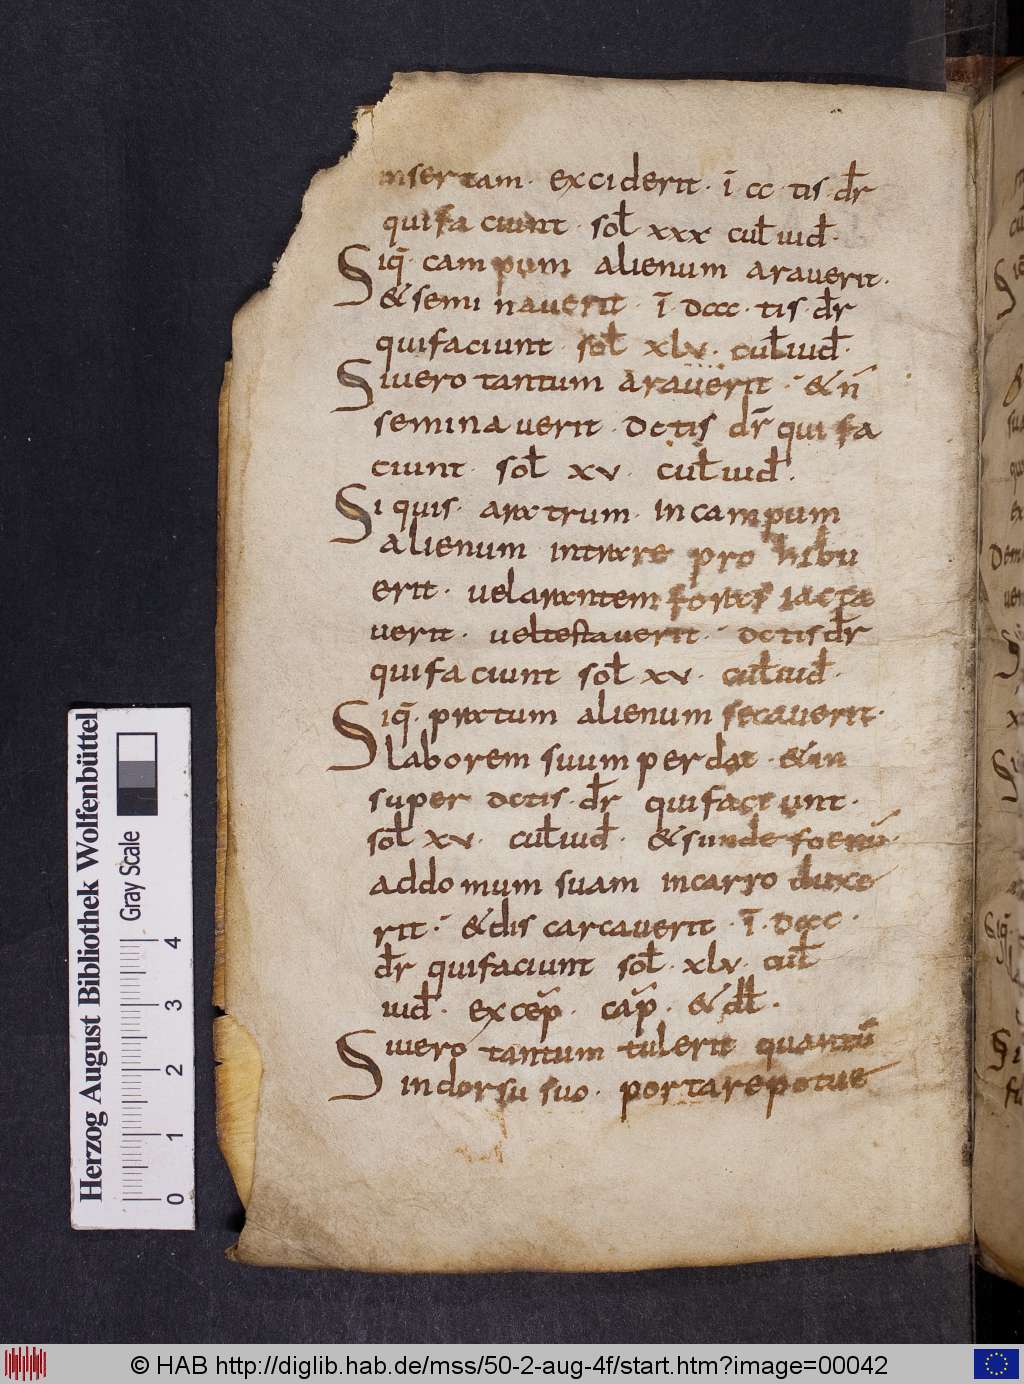 insertam · exciderit · ī cc · tis · dr̄
quifaciunt · sol̄ xxx cul̄ iud̄ ·
Siq̄ · campum alienum araverit ·
& seminaverit · ī · dccc · tis · dr̄
quifaciunt · sol̄ xlv · cul̄ iud̄ ·
Sivero tantum araverit · & n̄
seminaverit · dctis dr̄ quifa
ciunt · sol̄ xv · cul̄ iud̄ ·
Si quis · aratrum · in campum
alienum intrare prohibu
erit · vel arantem foras iacta
verit · vel testaverit · dctis dr̄
quifaciunt sol̄ xv · cul̄ iud̄ ·
Siq̄ · pratum alienum secaverit ·
laborem suum perdat · & in
super dctis · dr̄ quifaciunt ·
sol̄ xv · cul̄ iud̄ · & si inde foenū ·
ad domum suam in carro duxe
rit · & discarcaverit · ī · dccc ·
dr̄ quifaciunt sol̄ · xlv · cul̄
iud̄ · excep̄ · cap̄ · & dl̄ ·
Sivero tantum tulerit quantū
in dorsu suo · portare potue
Herzog August Bibliothek Wolfenbüttel
Gray Scale
0 1 2 3 4
© HAB http://diglib.hab.de/mss/50-2-aug-4f/start.htm?image=00042